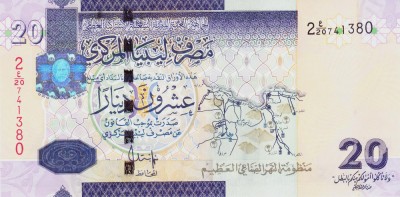 20
مصرف ليبيا المركزي
2 E/20 741380
2 E/20 741380
عشرون ديناراً
صدرت بموجب القانون
عن مصرف ليبيا المركزي
المحافظ
منظومة النهر الصناعي العظيم
20